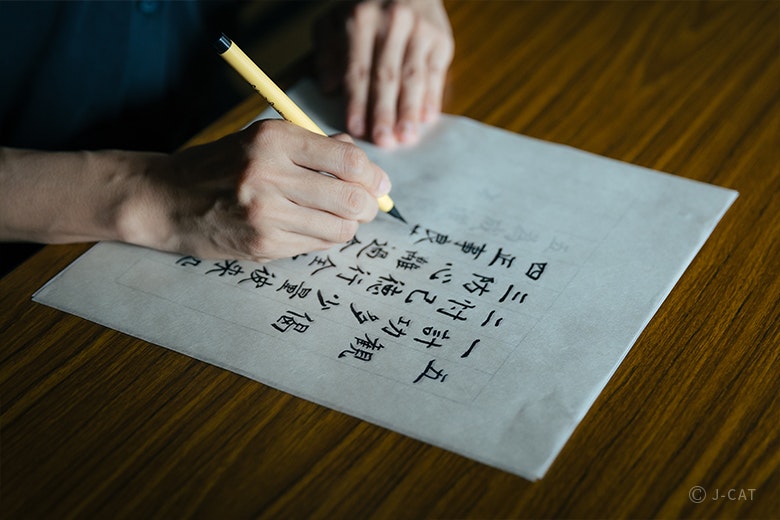 五観偈
一計功多少量彼来処
二忖己徳行全
三防心離過
四正事良
© J-CAT